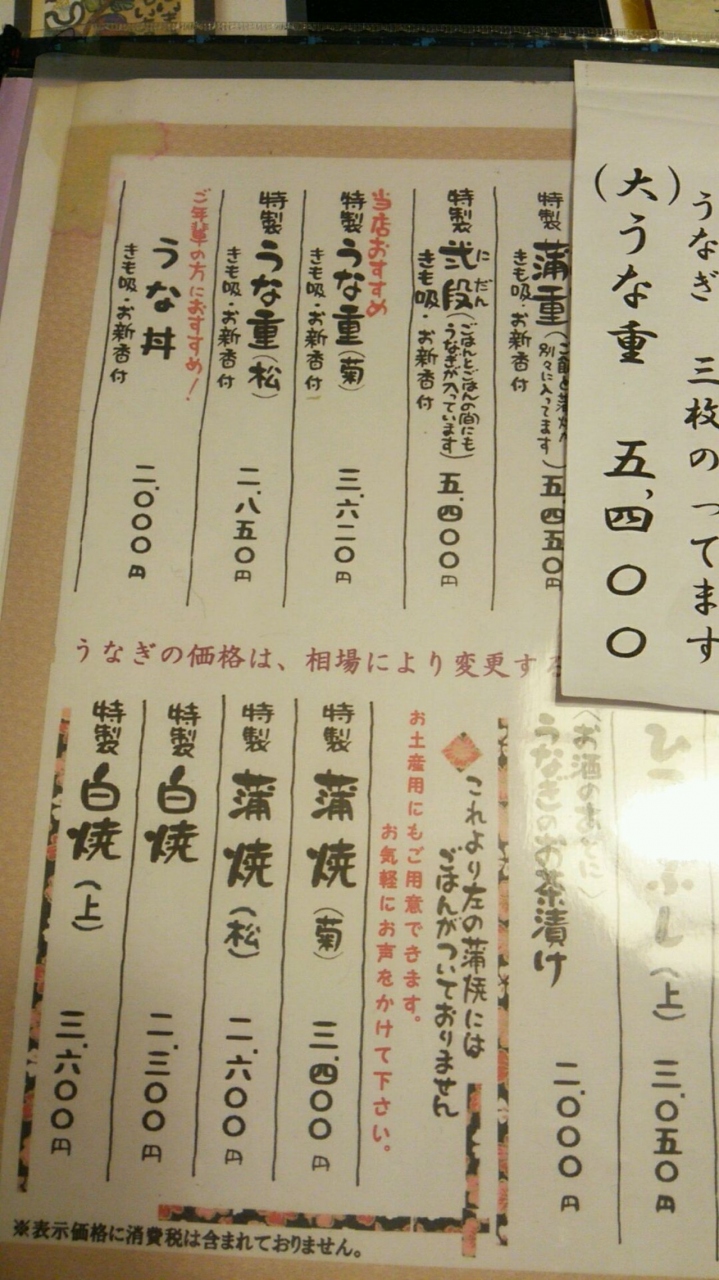 うなぎ 三枚のってます
(大)うな重 五,四〇〇
特製 蒲重
別々に入ってます)
きも吸・お新香付
五.四五〇円
特製 弐段 にだん
(ごはんとごはんの間にも
うなぎが入っています)
きも吸・お新香付
五.四〇〇円
当店おすすめ
特製 うな重(菊)
きも吸・お新香付
三.六二〇円
特製 うな重(松)
きも吸・お新香付
二.八五〇円
ご年輩の方におすすめ!
うな丼
きも吸・お新香付
二.〇〇〇円
うなぎの価格は、相場により変更する
(上) 三.〇五〇円
(お酒のあとに)
うなぎのお茶漬け
二.〇〇〇円
これより左の蒲焼には
ごはんがついておりません
お土産用にもご用意できます。
お気軽にお声をかけて下さい。
特製 蒲焼(菊) 三.四〇〇円
特製 蒲焼(松) 二.六〇〇円
特製 白焼 二.三〇〇円
特製 白焼(上) 三.六〇〇円
※表示価格に消費税は含まれておりません。